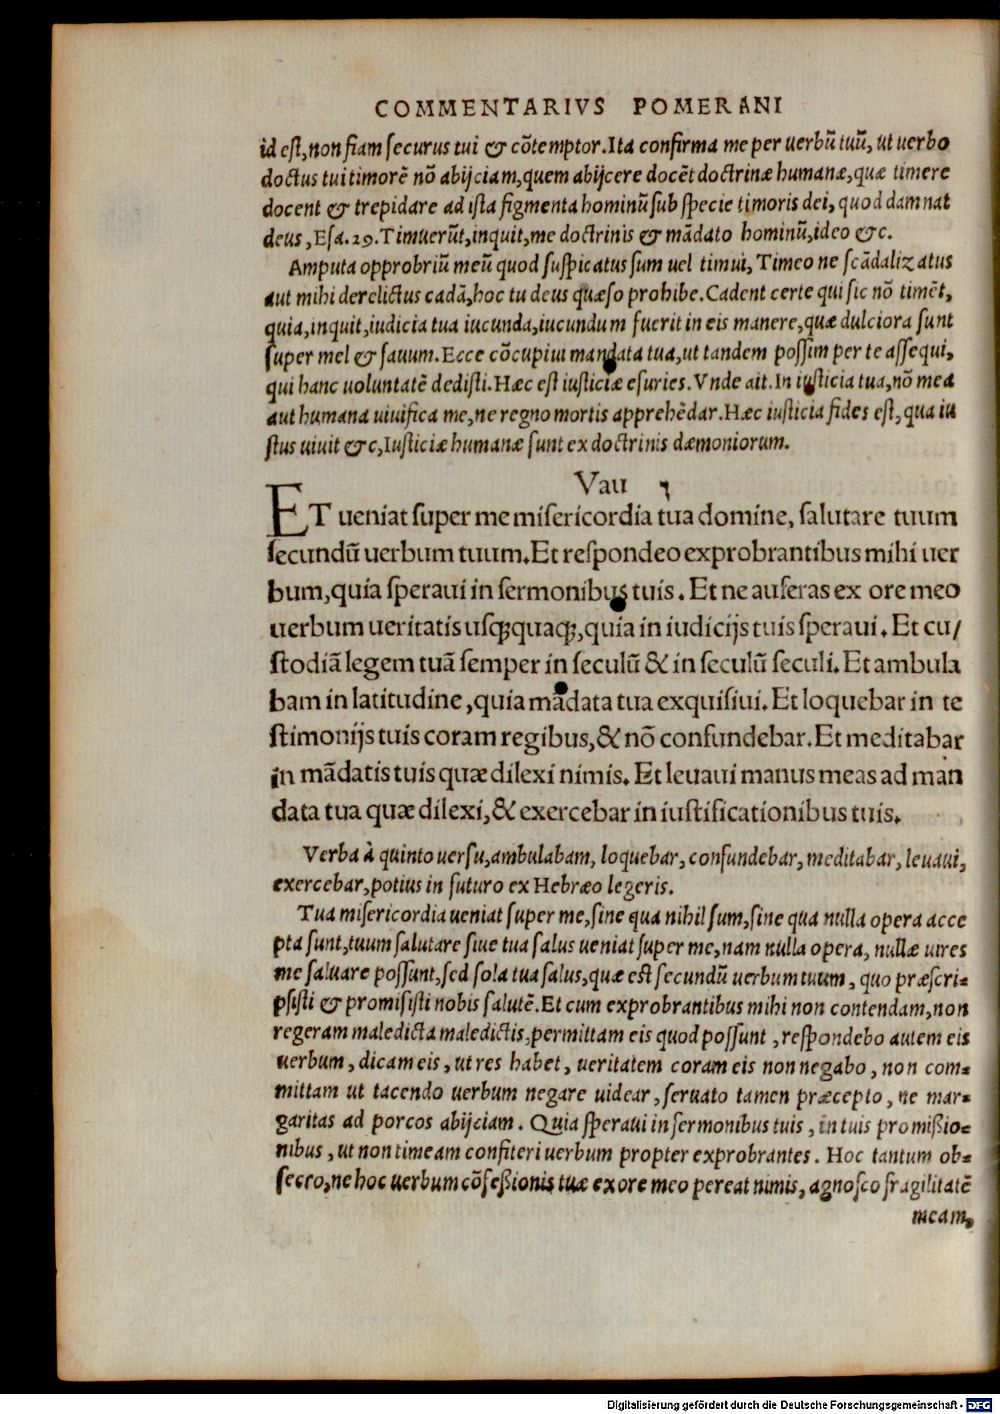 COMMENTARIVS POMERANI
id est, non fiam securus tui & cõtemptor. Ita confirma me per uerbũ tuũ, ut uerbo
doctus tui timorẽ nõ abijciam, quem abijcere docẽt doctrinæ humanæ, quæ timere
docent & trepidare ad ista figmenta hominũ sub specie timoris dei, quod damnat
deus, Esa. 29. Timuerũt, inquit, me doctrinis & mãdato hominũ, ideo &c.
Amputa opprobriũ meũ quod suspicatus sum uel timui, Timeo ne scãdalizatus
aut mihi derelictus cadã, hoc tu deus quæso prohibe. Cadent certe qui sic nõ timẽt,
quia, inquit, iudicia tua iucunda, iucundum fuerit in eis manere, quæ dulciora sunt
super mel & fauum. Ecce cõcupiui mandata tua, ut tandem possim per te assequi,
qui hanc uoluntatẽ dedisti. Hæc est iusticiæ esuries. Vnde ait. In iusticia tua, nõ mea
aut humana uiuifica me, ne regno mortis apprehẽdar. Hæc iusticia fides est, qua iu
stus uiuit &c, Iusticiæ humanæ sunt ex doctrinis dæmoniorum.
Vau ו
ET ueniat super me misericordia tua domine, salutare tuum
secundũ uerbum tuum. Et respondeo exprobrantibus mihi uer
bum, quia speraui in sermonibus tuis. Et ne auferas ex ore meo
uerbum ueritatis usqꝫquaqꝫ, quia in iudicijs tuis speraui. Et cu/
stodiã legem tuã semper in seculũ & in seculũ seculi. Et ambula
bam in latitudine, quia mãdata tua exquisiui. Et loquebar in te
stimonijs tuis coram regibus, & nõ confundebar. Et meditabar
in mãdatis tuis quæ dilexi nimis. Et leuaui manus meas ad man
data tua quæ dilexi, & exercebar in iustificationibus tuis.
Verba à quinto uersu, ambulabam, loquebar, confundebar, meditabar, leuaui,
exercebar, potius in futuro ex Hebræo legeris.
Tua misericordia ueniat super me, sine qua nihil sum, sine qua nulla opera acce
pta sunt, tuum salutare siue tua salus ueniat super me, nam nulla opera, nullæ uires
me saluare possunt, sed sola tua salus, quæ est secundũ uerbum tuum, quo præscri-
psisti & promisisti nobis salutẽ. Et cum exprobrantibus mihi non contendam, non
regeram maledicta maledictis, permittam eis quod possunt, respondebo autem eis
uerbum, dicam eis, ut res habet, ueritatem coram eis non negabo, non com-
mittam ut tacendo uerbum negare uidear, seruato tamen præcepto, ne mar-
garitas ad porcos abijciam. Quia speraui in sermonibus tuis, in tuis promißio-
nibus, ut non timeam confiteri uerbum propter exprobrantes. Hoc tantum ob-
secro, ne hoc uerbum cõfeßionis tuæ ex ore meo pereat nimis, agnosco fragilitatẽ
meam,
Digitalisierung gefördert durch die Deutsche Forschungsgemeinschaft - DFG